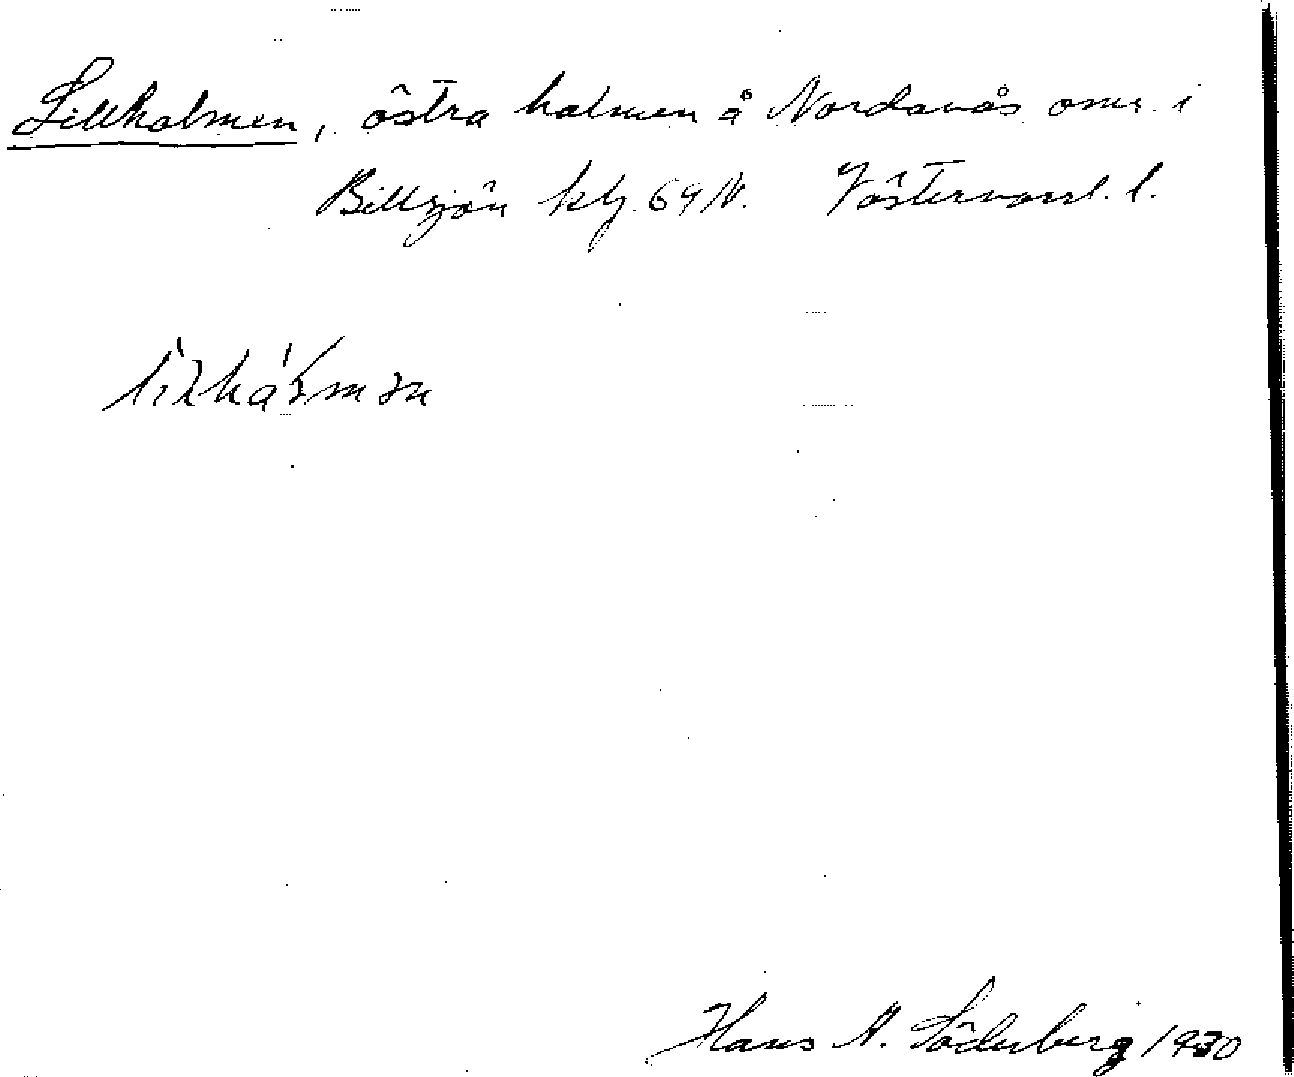 Lillholmen, östra holmen å Nordanås omr. i
Billsjön klj. 69 N. Västervassl. l.
Hans N. Söderberg 1930